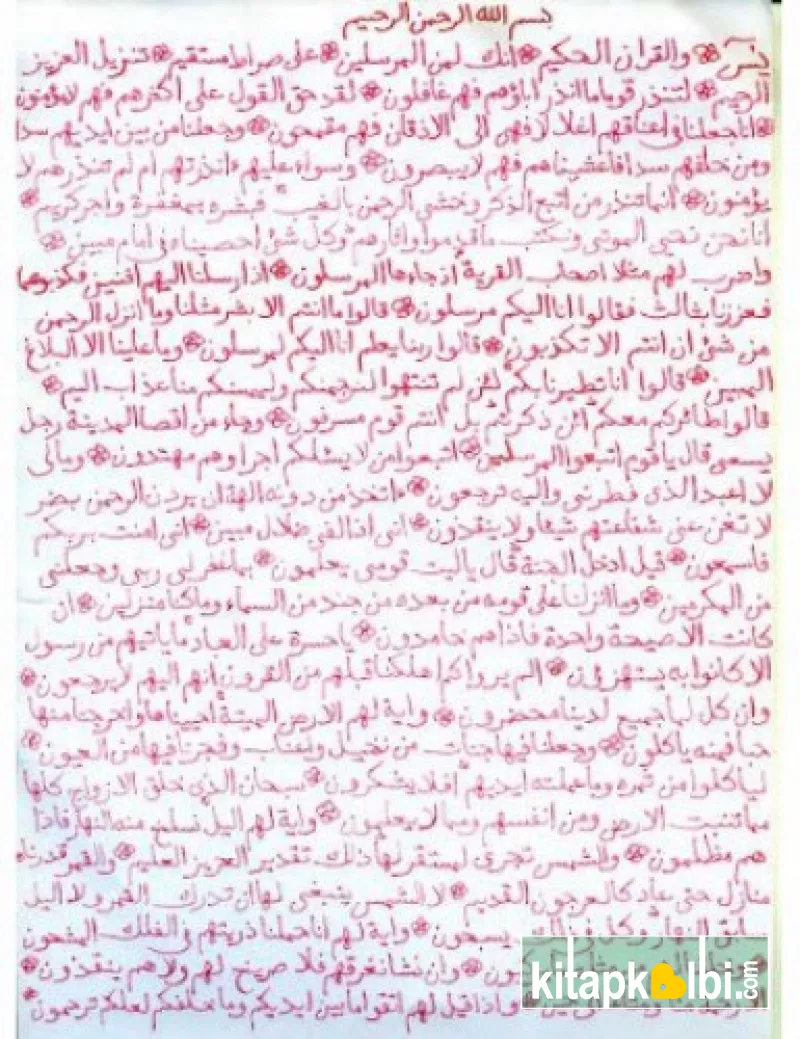 بسم الله الرحمن الرحيم
يس والقران الحكيم انك لمن المرسلين على صراط مستقيم تنزيل العزيز
الرحيم لتنذر قوما ما انذر اباؤهم فهم غافلون لقد حق القول على اكثرهم فهم لا يؤمنون
انا جعلنا فى اعناقهم اغلالا فهى الى الاذقان فهم مقمحون وجعلنا من بين ايديهم سدا
ومن خلفهم سدا فاغشيناهم فهم لا يبصرون وسواء عليهم ءانذرتهم ام لم تنذرهم لا
يؤمنون انما تنذر من اتبع الذكر وخشى الرحمن بالغيب فبشره بمغفرة واجر كريم
انا نحن نحيى الموتى ونكتب ما قدموا واثارهم وكل شئ احصيناه فى امام مبين
واضرب لهم مثلا اصحاب القرية اذ جاءها المرسلون اذ ارسلنا اليهم اثنين فكذبوهما
فعززنا بثالث فقالوا انا اليكم مرسلون قالوا ما انتم الا بشر مثلنا وما انزل الرحمن
من شئ ان انتم الا تكذبون قالوا ربنا يعلم انا اليكم لمرسلون وما علينا الا البلاغ
المبين قالوا انا تطيرنا بكم لئن لم تنتهوا لنرجمنكم وليمسنكم منا عذاب اليم
قالوا طائركم معكم ائن ذكرتم بل انتم قوم مسرفون وجاء من اقصا المدينة رجل
يسعى قال يا قوم اتبعوا المرسلين اتبعوا من لا يسئلكم اجرا وهم مهتدون ومالى
لا اعبد الذى فطرنى واليه ترجعون ءاتخذ من دونه الهة ان يردن الرحمن بضر
لا تغن عنى شفاعتهم شيئا ولا ينقذون انى اذا لفى ضلال مبين انى امنت بربكم
فاسمعون قيل ادخل الجنة قال ياليت قومى يعلمون بما غفر لى ربى وجعلنى
من المكرمين وما انزلنا على قومه من بعده من جند من السماء وما كنا منزلين ان
كانت الا صيحة واحدة فاذا هم خامدون ياحسرة على العباد ما ياتيهم من رسول
الا كانوا به يستهزؤن الم يروا كم اهلكنا قبلهم من القرون انهم اليهم لا يرجعون
وان كل لما جميع لدينا محضرون واية لهم الارض الميتة احييناها واخرجنا منها
حبا فمنه ياكلون وجعلنا فيها جنات من نخيل واعناب وفجرنا فيها من العيون
لياكلوا من ثمره وما عملته ايديهم افلا يشكرون سبحان الذى خلق الازواج كلها
مما تنبت الارض ومن انفسهم ومما لا يعلمون واية لهم اليل نسلخ منه النهار فاذا
هم مظلمون والشمس تجرى لمستقر لها ذلك تقدير العزيز العليم والقمر قدرناه
منازل حتى عاد كالعرجون القديم لا الشمس ينبغى لها ان تدرك القمر ولا اليل
سابق النهار وكل فى فلك يسبحون واية لهم انا حملنا ذريتهم فى الفلك المشحون
وان نشا نغرقهم فلا صريخ لهم ولا هم ينقذون
واذا قيل لهم اتقوا ما بين ايديكم وما خلفكم لعلكم ترحمون
kitapkalbi.com